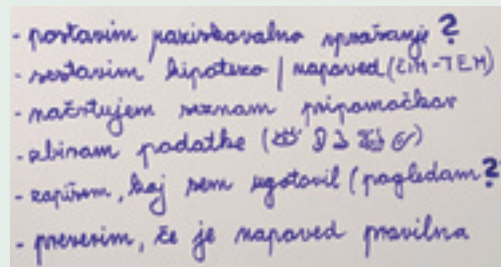 - postavim raziskovalno vprašanje?
- sestavim hipotezo / napoved (ČIM-TEM)
- načrtujem seznam pripomočkov
- zbiram podatke (
- zapišem, kaj sem ugotovil (pogledam?
- preverim, če je napoved pravilna